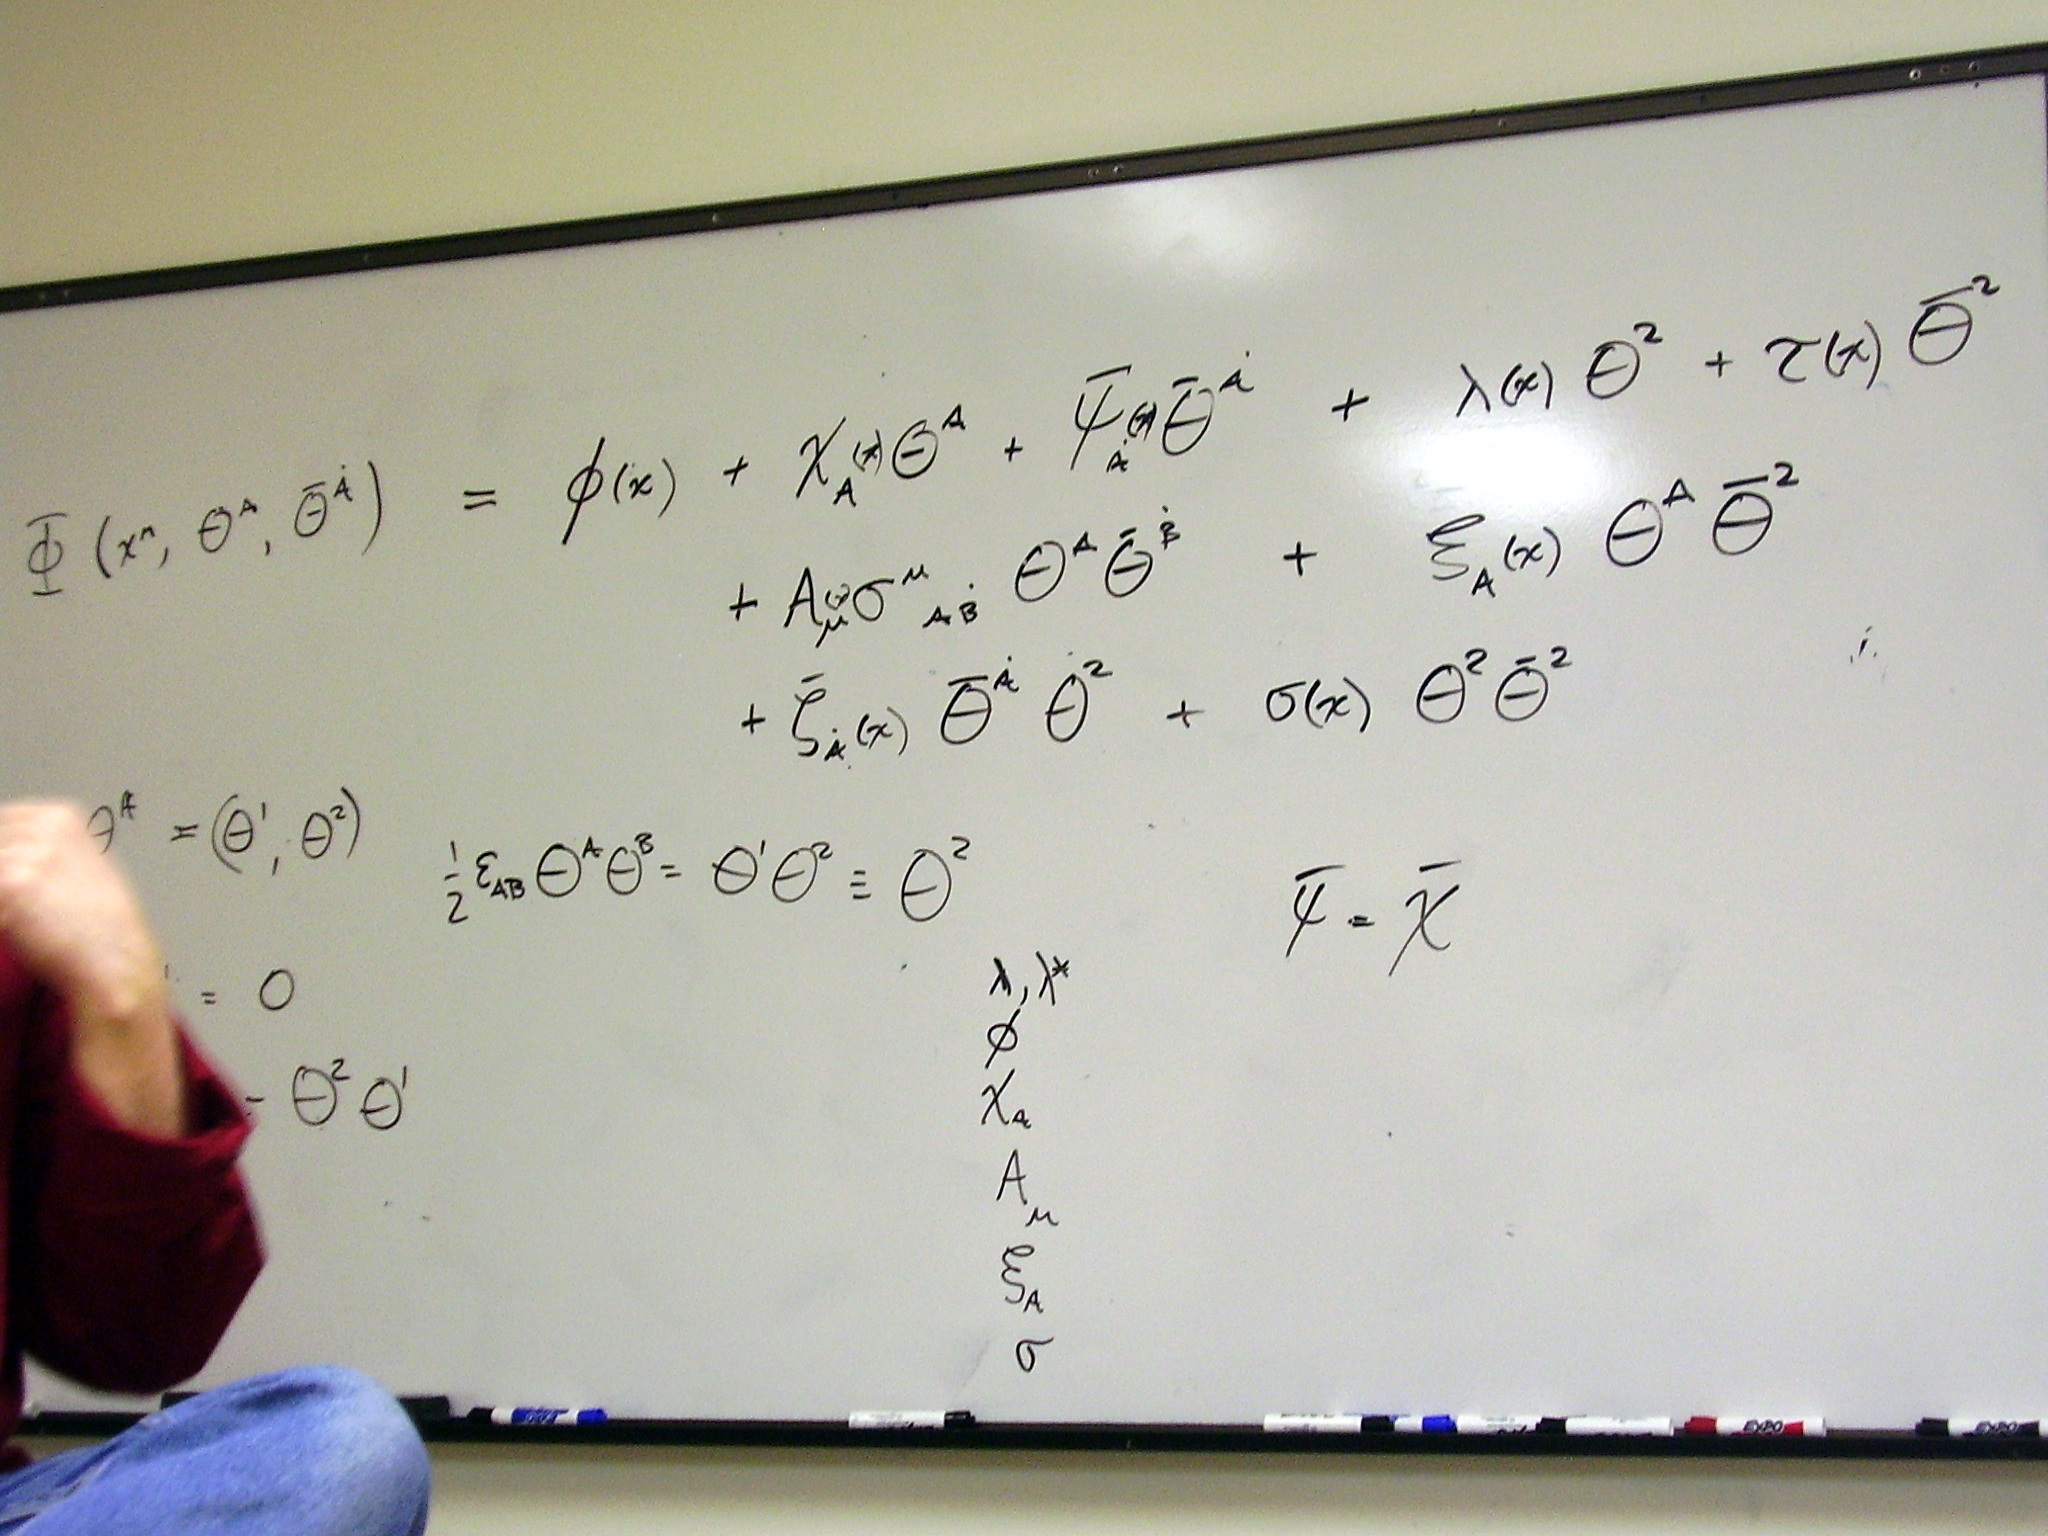 Φ̄ (xᵐ, θᴬ, θ̄ᴬ̇) = ϕ(x) + χ_A(x) θᴬ + ψ̄_Ȧ(x) θ̄ᴬ̇ + λ(x) θ² + τ(x) θ̄²
+ A_μ(x) σ^μ_AḂ θᴬ θ̄ᴮ̇ + ξ_A(x) θᴬ θ̄²
+ ζ̄_Ȧ(x) θ̄ᴬ̇ θ² + σ(x) θ² θ̄²
θᴬ = (θ¹, θ²)
½ ε_AB θᴬ θᴮ = θ¹ θ² ≡ θ²
ψ̄ = χ̄
= 0
λ, λ*
ϕ
χ_A
- θ² θ¹
A_μ
ξ_A
σ
EXPO
EXPO